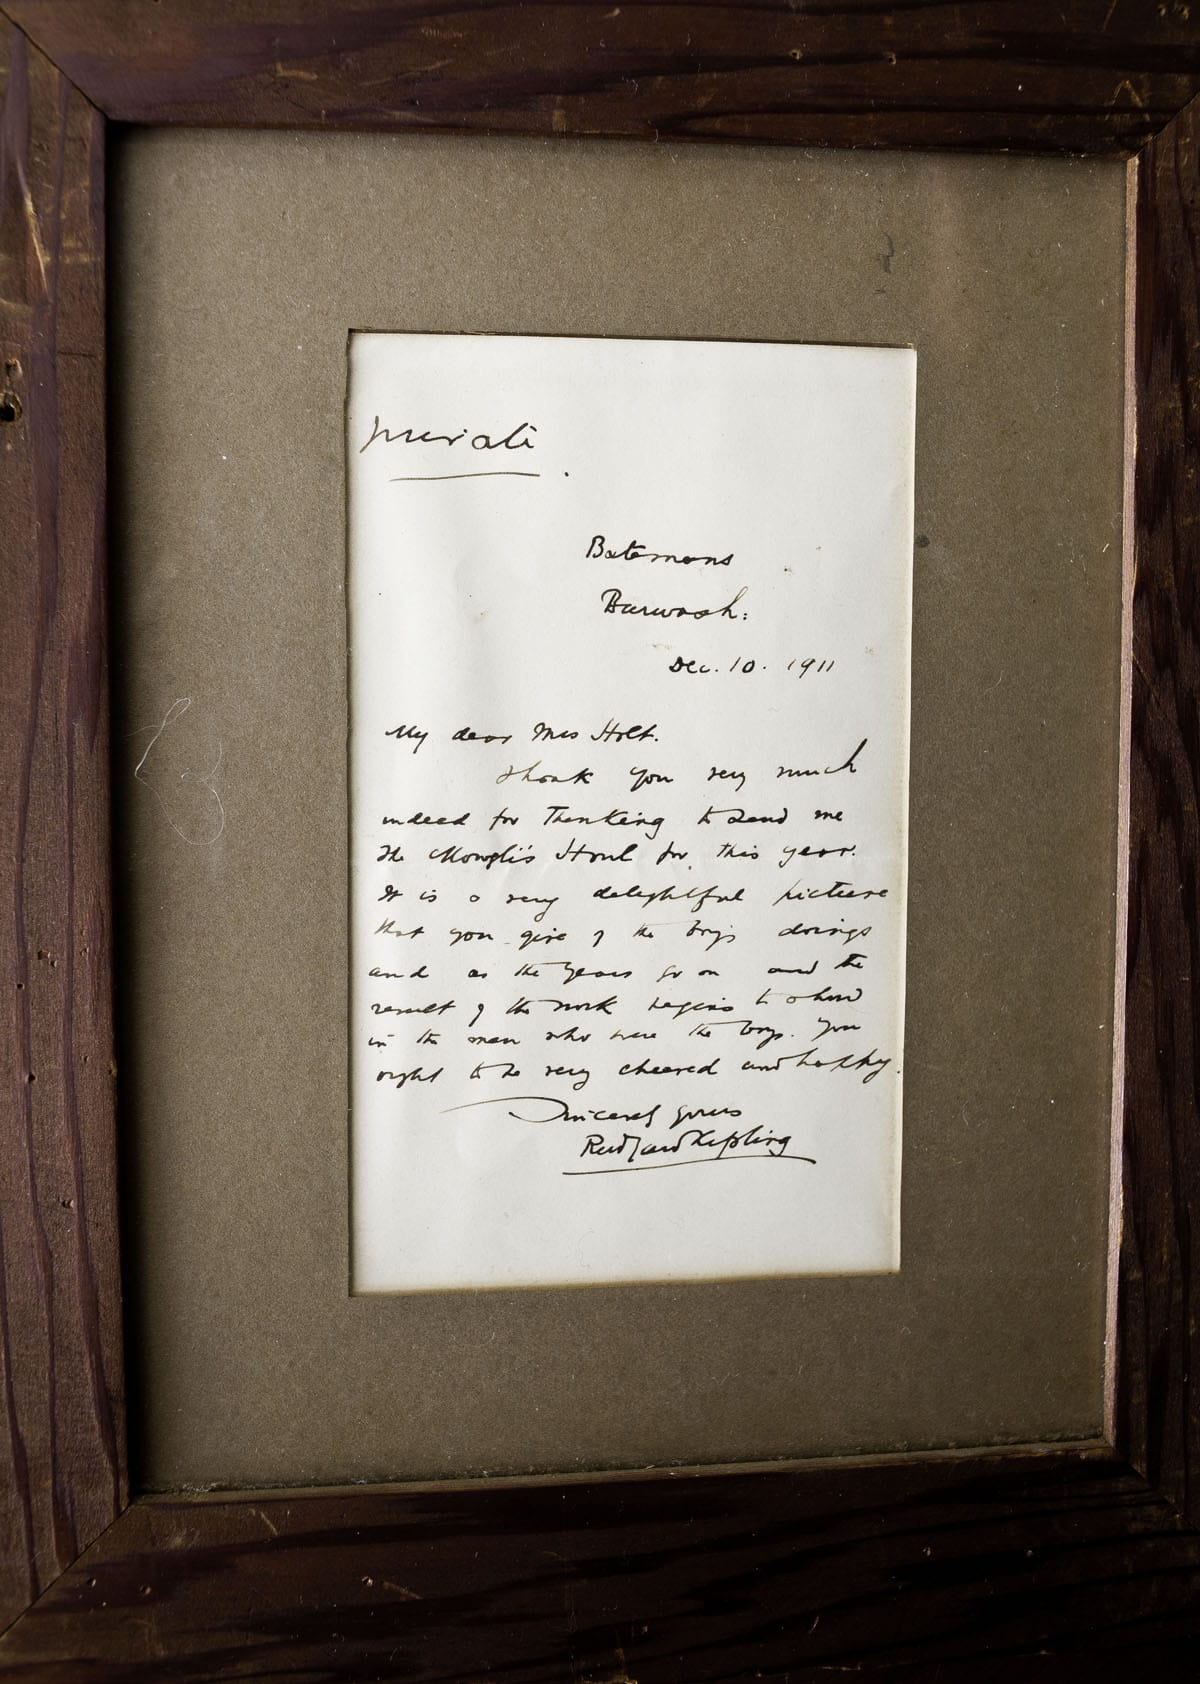 private
Batemans
Burwash:
Dec. 10. 1911
My dear Mrs Holt.
Thank you very much
indeed for thinking to send me
the Mowgli's Howl for this year.
It is a very delightful picture
that you give of the boys doings
and as the years go on and the
result of the work begins to show
in the men who were the boys. you
ought to be very cheered and happy.
Sincerely yours
Rudyard Kipling